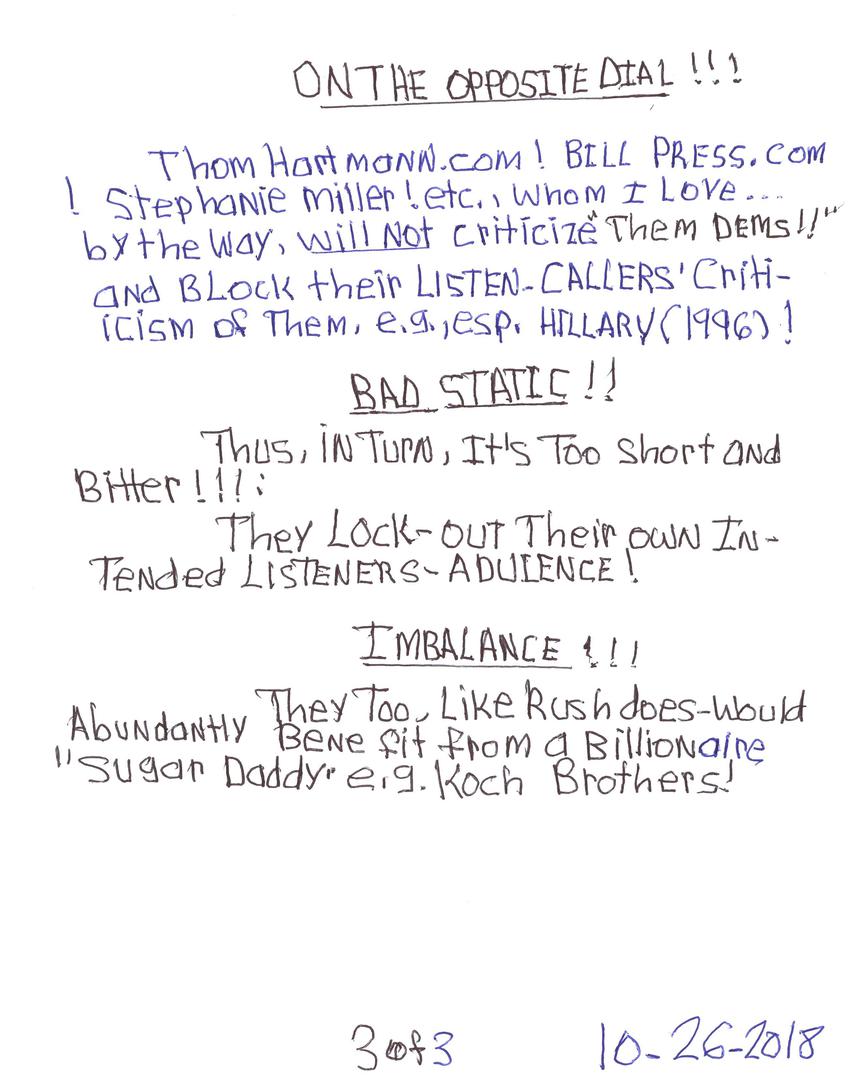 ON THE OPPOSITE DIAL !!!
Thom Hartmann.com! BILL PRESS.com
! Stephanie miller! etc., whom I Love...
by the way, will Not criticize "Them DEMS!!"
and BLock their LISTEN-CALLERS' Criti-
icism of Them, e.g., esp. HILLARY (1996)!
BAD STATIC!!
Thus, iN TurN, It's Too short and
Bitter!!!:
They Lock-out Their own IN-
Tended LISTENERS-ADUIENCE!
IMBALANCE !!!
They Too, Like Rush does-would
AbuNdantly BeNefit from a Billionaire
"Sugar Daddy" e.g. Koch Brothers!
3 of 3 10-26-2018